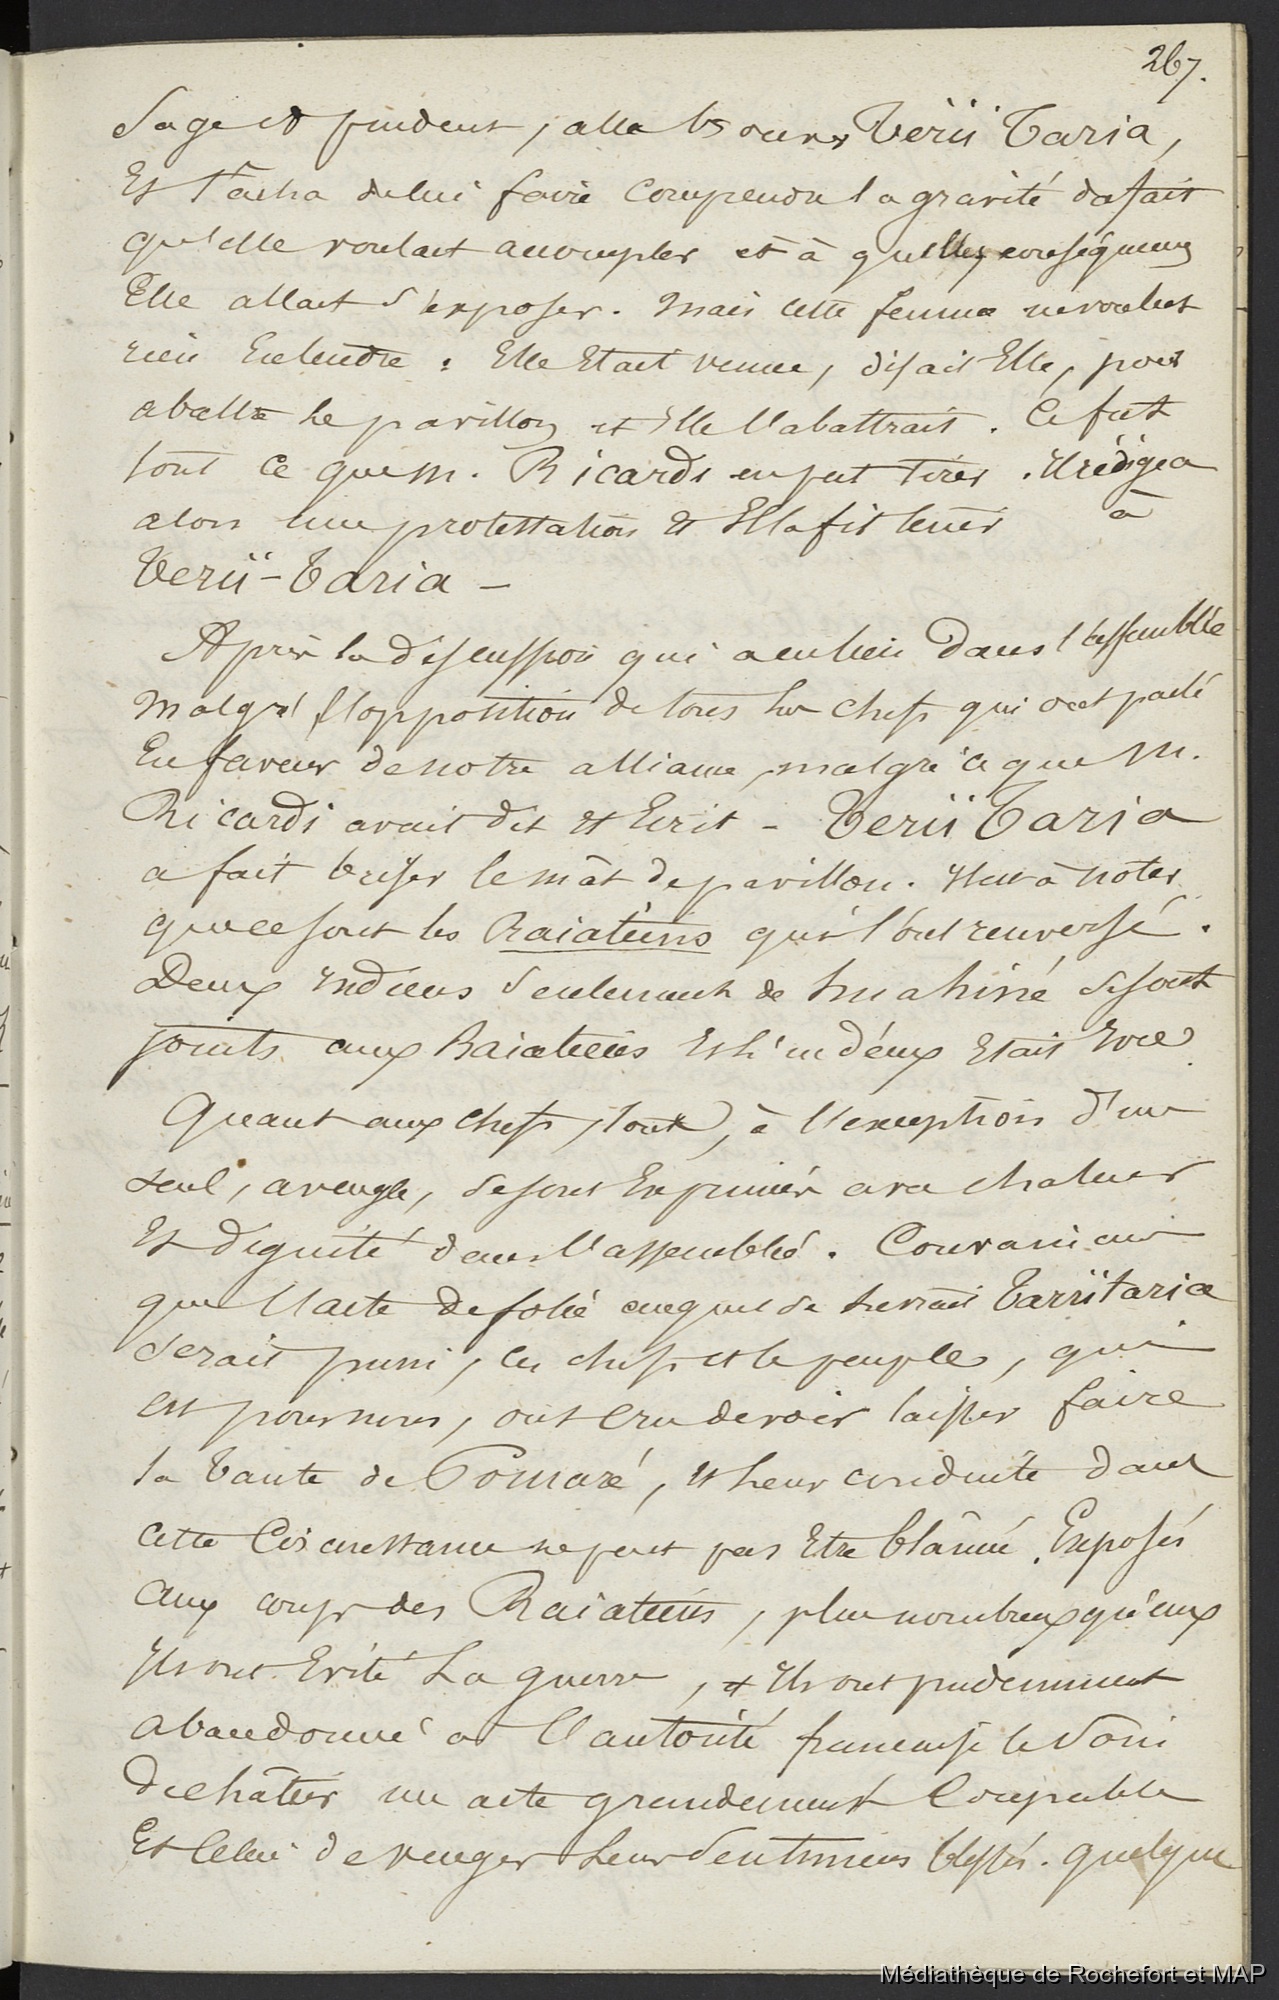 267.
Sage et prudent, alla trouver Terii Taria,
Et tâcha de lui faire comprendre la gravité du fait
qu'elle voulait accomplir et à quelles conséquences
Elle allait s'exposer. Mais cette femme ne voulut
rien Entendre : Elle Etait venue, disait Elle, pour
abattre le pavillon et Elle l'abattrait. Ce fut
tout ce que M. Ricardi en put tirer. Il rédigea
alors une protestation et Il la fit tenir à
Terii-Taria -
Après la discussion qui a eu lieu Dans l'assemblée
Malgré l'opposition de tous les chefs qui ont parlé
En faveur de notre alliance, malgré ce que M.
Ricardi avait dit et Ecrit - Terii Taria
a fait briser le mât de pavillon. Il est à noter
que ce sont les Raiatéens qui l'ont renversé.
Deux indiens seulement de huahiné se sont
joints aux Raiatéens Et l'un d'eux Etait Ivre
Quant aux chefs, tous, à l'exception d'un
seul, aveugle, se sont Exprimés avec chaleur
Et dignité dans l'assemblée. Convaincus
que l'acte de folie auquel se livrait Tariitaria
serait puni, les chefs et le peuple, qui
est pour nous, ont cru devoir laisser faire
la tante de Pomaré, et leur conduite dans
cette Circonstance ne peut pas Etre blâmé. Exposés
aux coups des Raiatéens, plus nombreux qu'eux
Ils ont Evité La guerre, et Ils ont prudemment
abandonné a l'autorité française le soin
de châtier un acte grandement Coupable
Et Celui de venger leurs sentimens blessés. quelque
Médiathèque de Rochefort et MAP